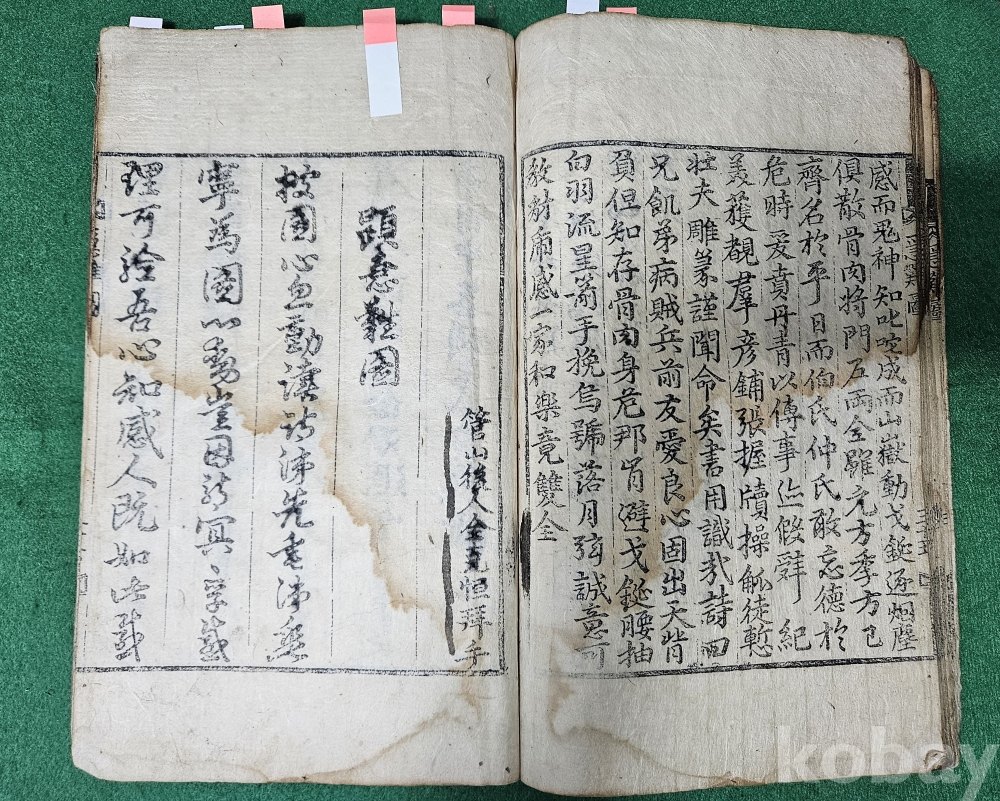 感而鬼神知叱咤成而山嶽動戈鋋逐烟塵
俱散骨肉將門五兩全雖元方季方已
齊名於平日而伯氏仲氏敢忘德於
危時爰賁丹青以傳事迹假辭紀
美獲覩羣彦鋪張握牘操觚徒慙
壯夫雕篆謹聞命矣書用識哉詩曰
兄飢弟病賊兵前友愛良心固出天背
負但知存骨肉身危那肯避戈鋋腰抽
白羽流星箭手挽烏號落月弦誠意可
教豺虎感一家和樂竟雙全
管山後人全克恒拜手
題急難圖
按圖心魚動讀詩涕先垂涕無
寧為圖心動豈因詩冥
理可論吾心知感人既如此
kobay